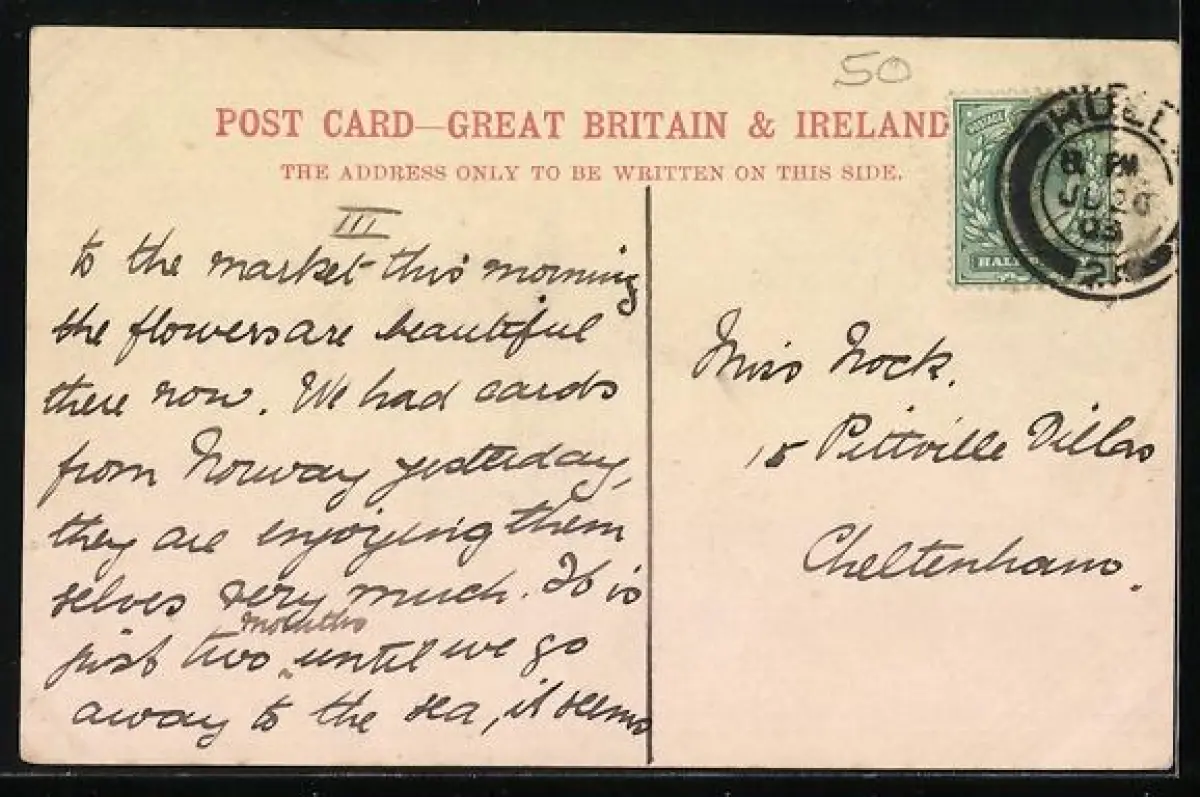 50
POST CARD—GREAT BRITAIN & IRELAND
THE ADDRESS ONLY TO BE WRITTEN ON THIS SIDE.
POSTAGE
HULL
8 PM
03
HALF
III
to the market this morning
the flowers are beautiful
there now. We had cards
from Norway yesterday,
they are enjoying them
selves very much. It is
months
just two ‸ until we go
away to the sea, it seems
Miss Nock.
15 Pittville Villas
Cheltenham.